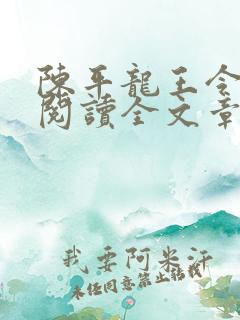 陳平龍王令
閱讀全文章
我要阿米汗
未任同意禁止恬我